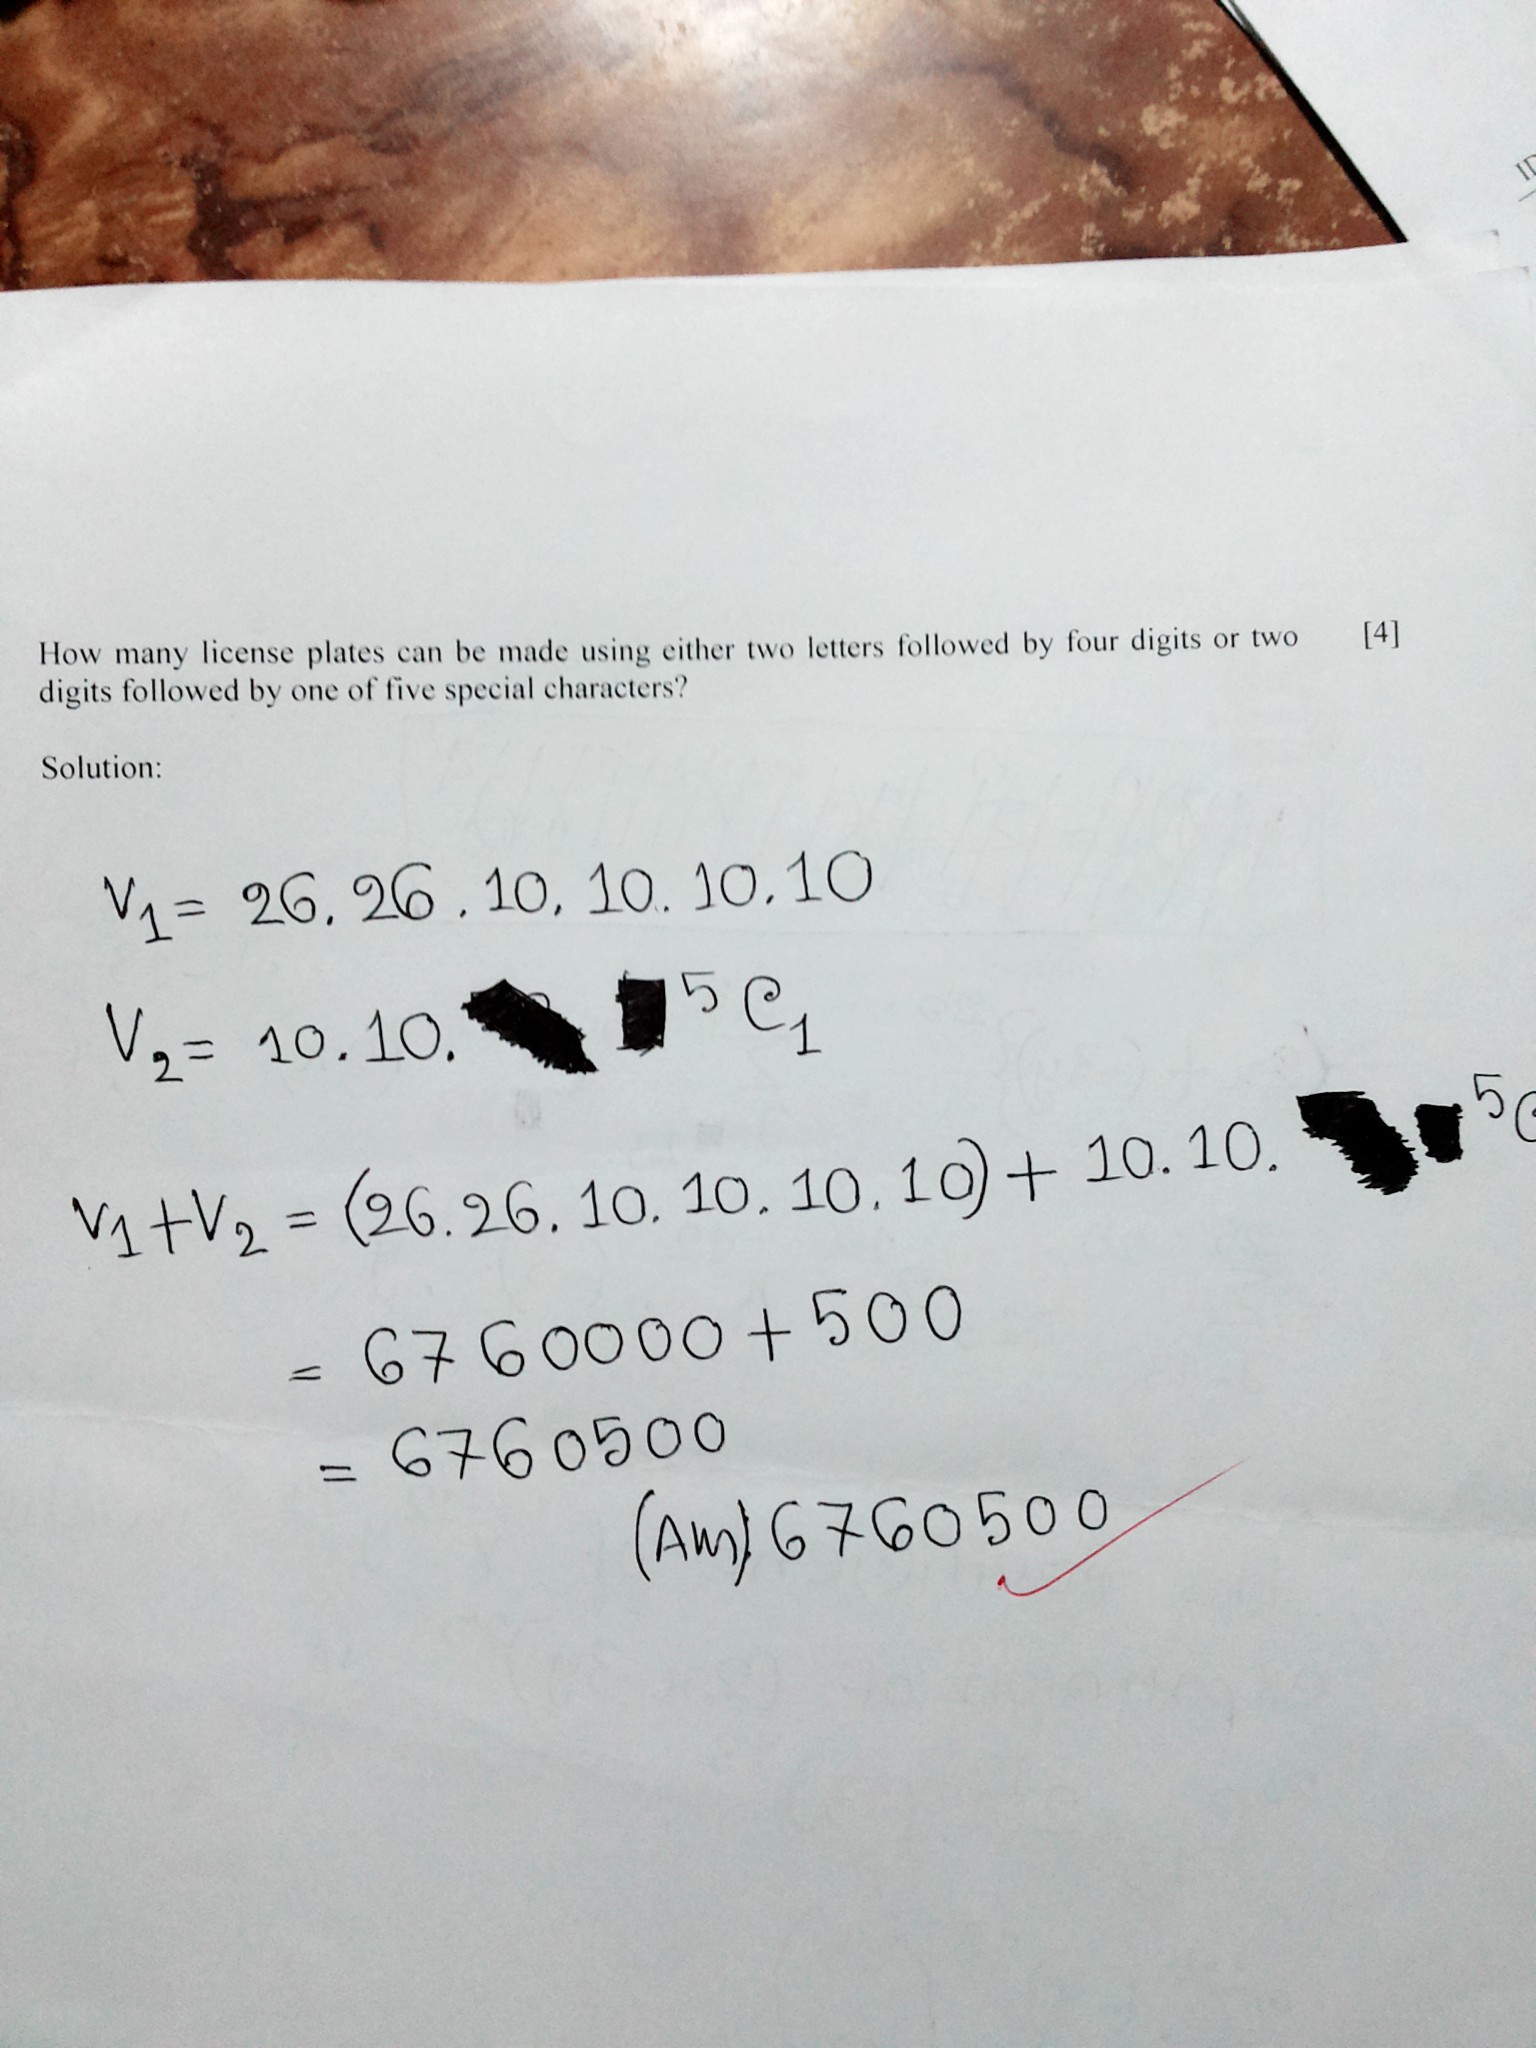 ID
How many license plates can be made using either two letters followed by four digits or two [4]
digits followed by one of five special characters?
Solution:
V₁ = 26. 26 . 10. 10. 10. 10
V₂ = 10. 10. ⁵C₁
V₁+V₂ = (26. 26. 10. 10. 10. 10) + 10. 10. ⁵C
= 6760000 + 500
= 6760500
(Ans): 6760500